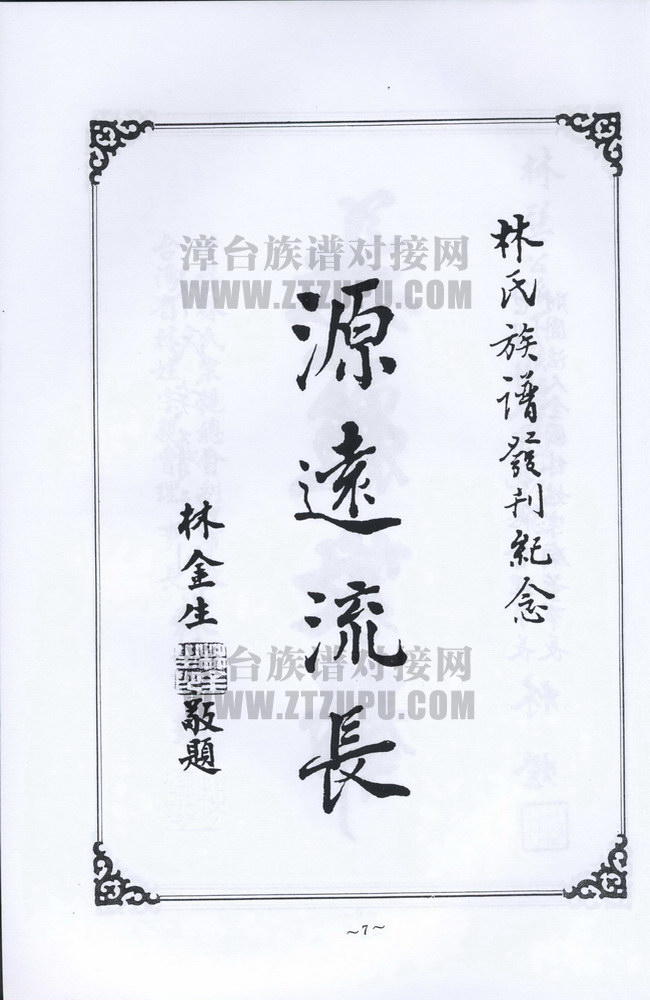 林氏族譜發刊紀念
源遠流長
林金生
敬題
漳台族谱对接网
WWW.ZTZUPU.COM
漳台族谱对接网
WWW.ZTZUPU.COM
~7~